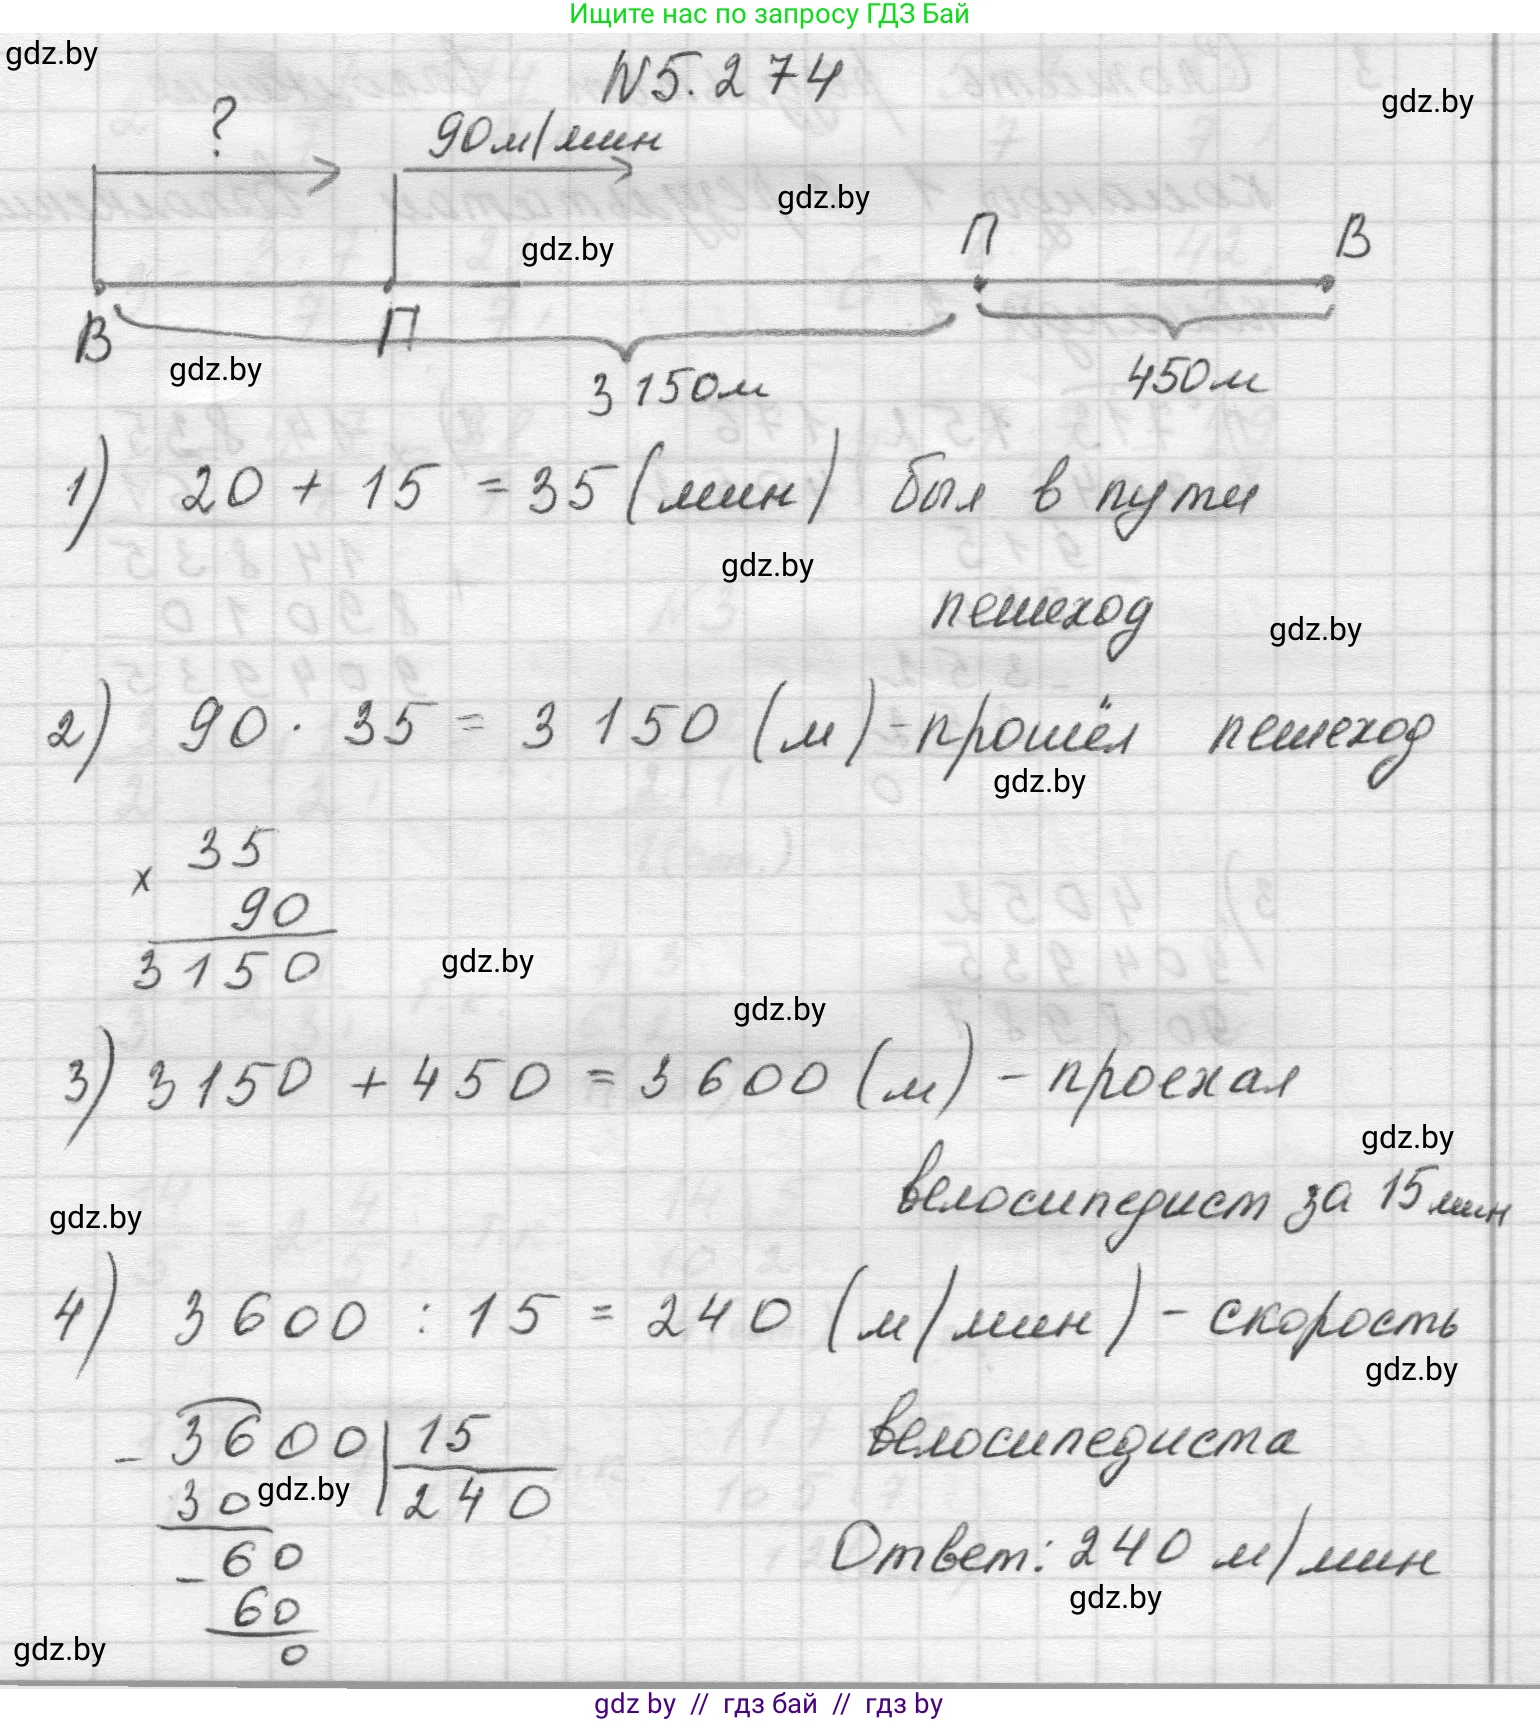 Ищите нас по запросу ГДЗ Бай
gdz.by
N5.274
gdz.by
?
90м/мин
gdz.by
gdz.by
П
В
В
П
gdz.by
3 150м
450м
1) 20 + 15 = 35 (мин) был в пути
gdz.by
пешеход
gdz.by
2) 90 · 35 = 3 150 (м) - прошёл пешеход
gdz.by
35
x
90
3150
gdz.by
gdz.by
3) 3150 + 450 = 3 600 (м) - проехал
gdz.by
велосипедист за 15 мин
gdz.by
4) 3600 : 15 = 240 (м/мин) - скорость
gdz.by
- 3600 | 15
велосипедиста
30
gdz.by
240
- 60
Ответ: 240 м/мин
gdz.by
60
gdz.by
0
gdz by // гдз бай // гдз by